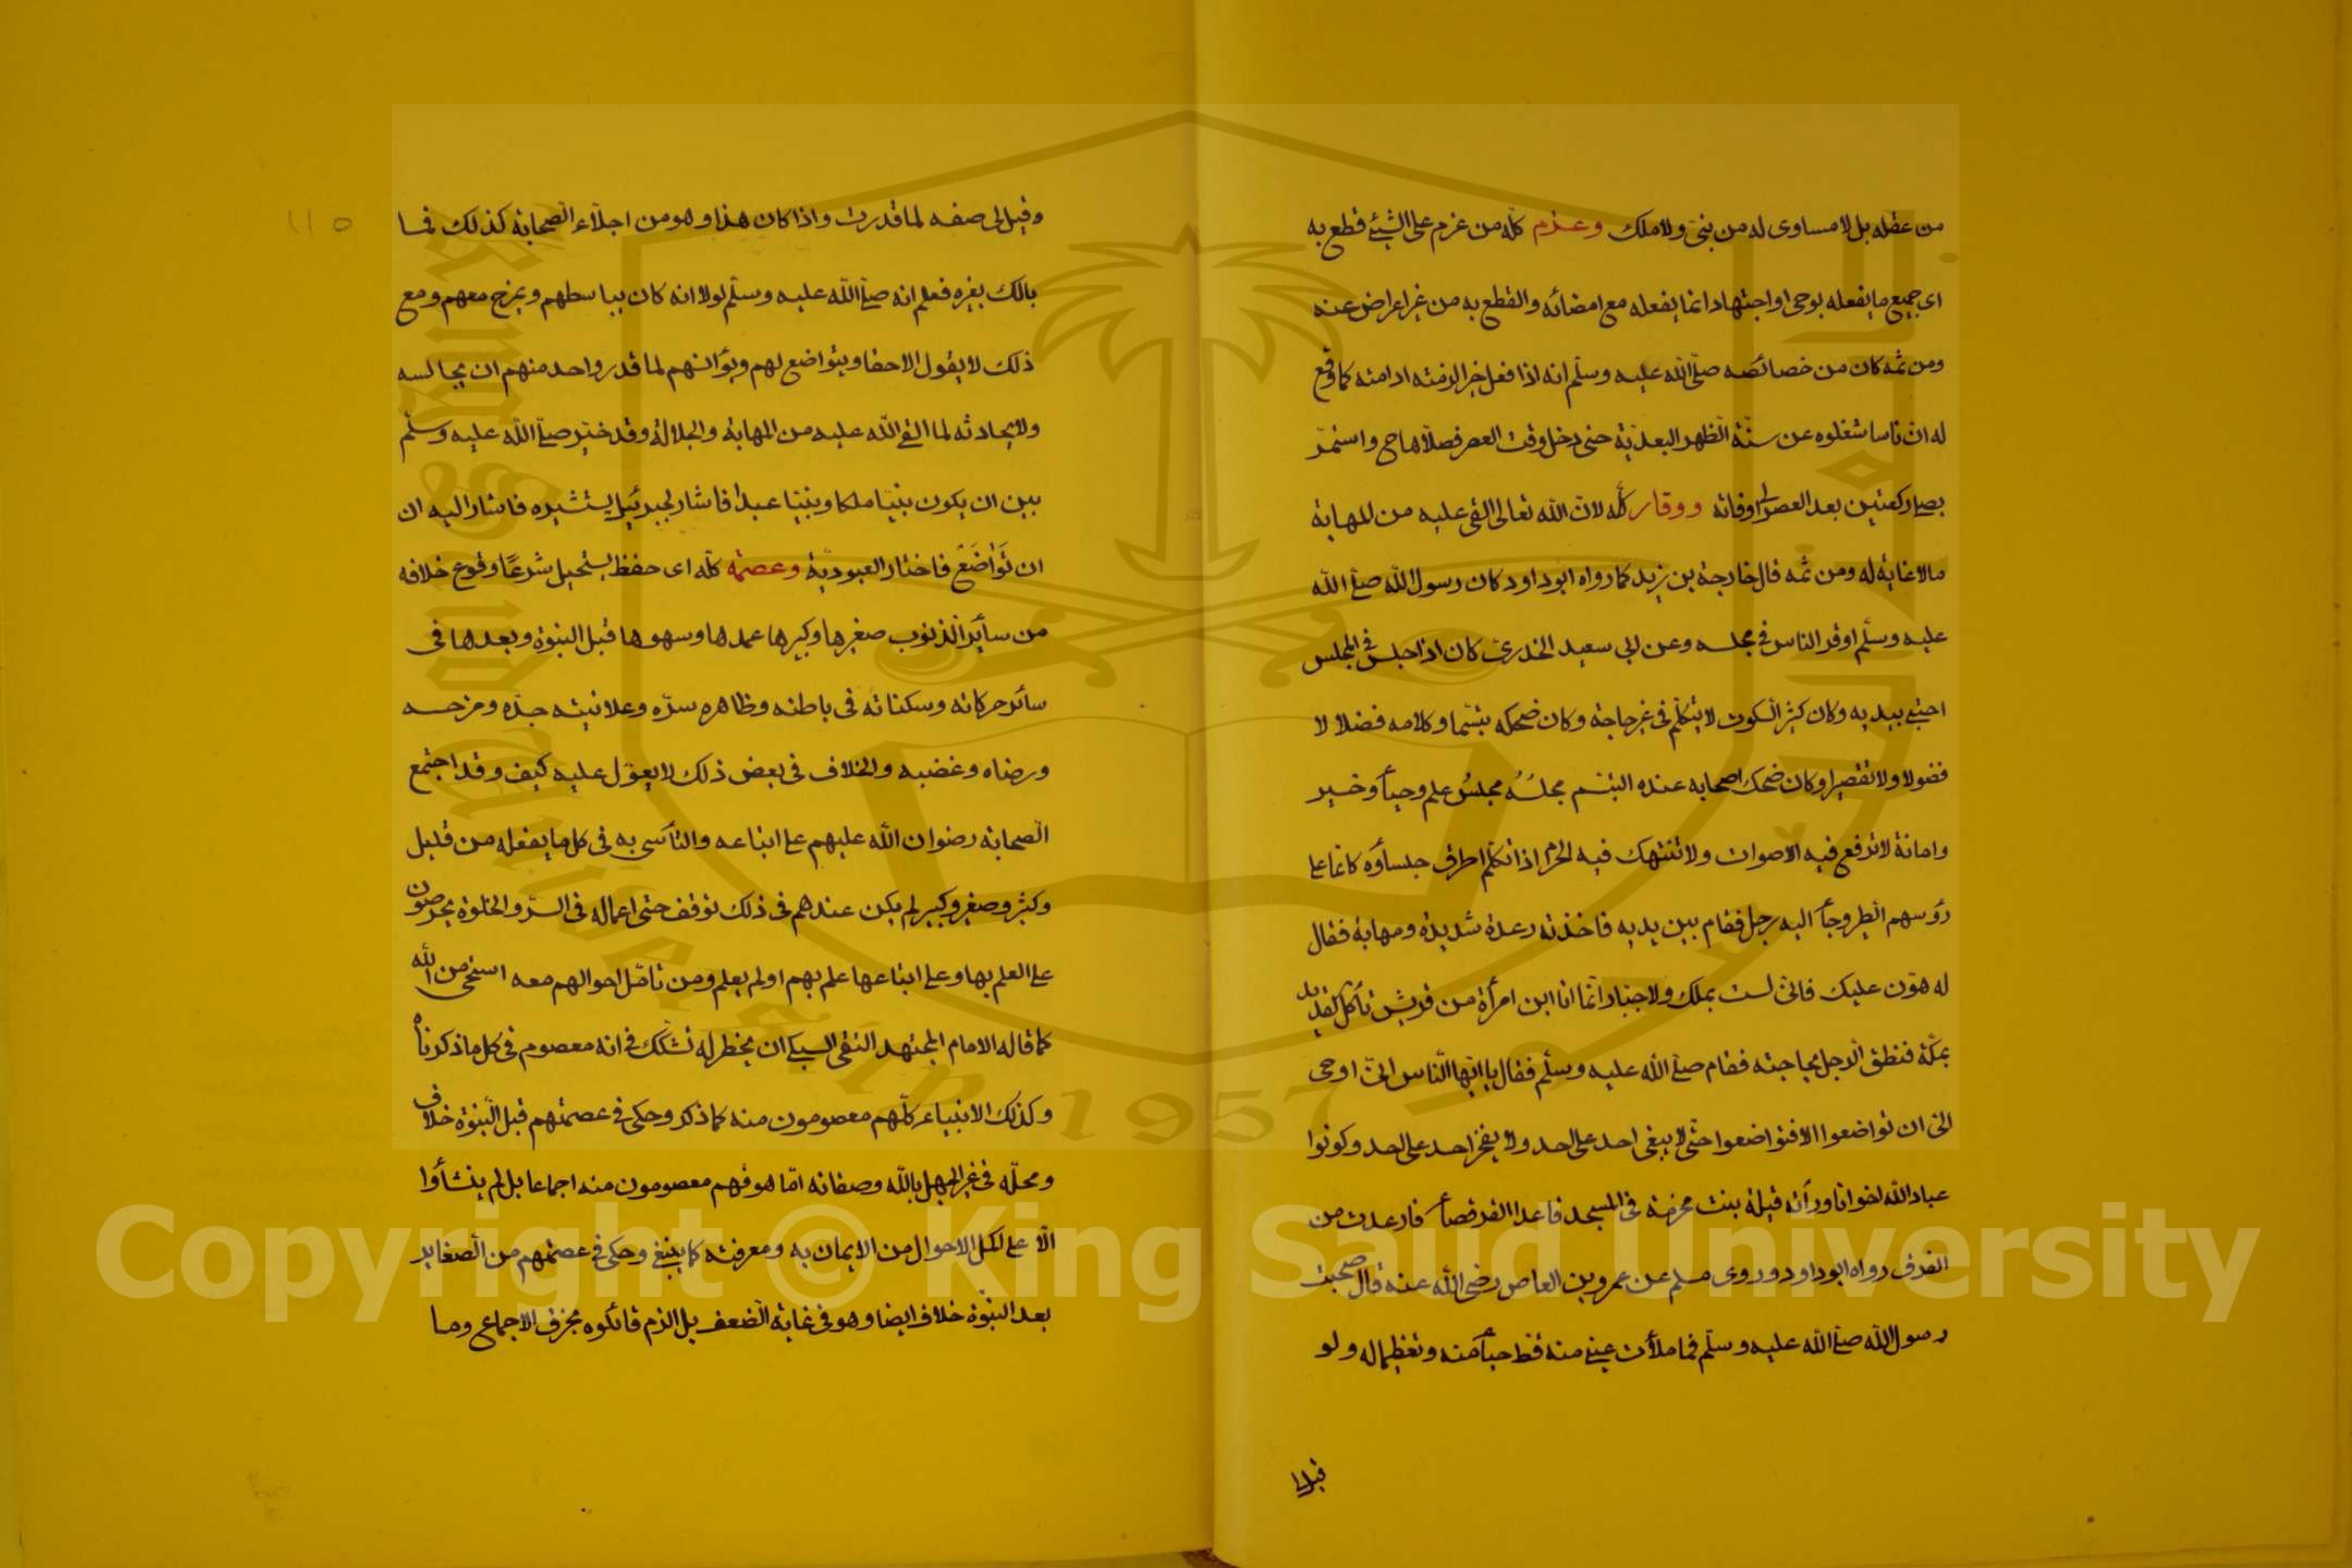 من عقله بل لا مساوى له من نبى ولا ملك وعزم كله من عزم على الشيئ قطع به
اى جميع ما يفعله بوحى او اجتهاد انما يفعله مع امضائه والقطع به من غير اعراض عنه
ومن ثمه كان من خصائصه صلى الله عليه وسلم انه اذا فعل خيرا لزمته ادامته كما وقع
له ان ناسا شغلوه عن سنة الظهر البعدية حتى دخل وقت العصر فصلاها ح واستمر
يصلى ركعتين بعد العصر لوفاته ووقار كله لان الله تعالى القى عليه من المهابة
مالا غاية له ومن ثمه قال خارجة بن زيد كما رواه ابو داود كان رسول الله صلى الله
عليه وسلم اوقر الناس فى مجلسه وعن ابى سعيد الخدرى كان اذا جلس فى المجلس
احتبى بيديه وكان كثير السكوت لا يتكلم فى غير حاجة وكان ضحكه تبسما وكلامه فصلا لا
فضولا ولا تقصيرا وكان ضحك اصحابه عنده التبسم مجلسُه مجلسُ علم وحيأ وخير
وامانة لا ترفع فيه الاصوات ولا تنتهك فيه الحرم اذا تكلم اطرق جلساؤه كانما على
رؤسهم الطير وجأ اليه رجل فقام بين يديه فاخذته رعدة شديدة ومهابة فقال
له هون عليك فانى لست بملك ولا جبار انما انا ابن امرأة من قريش تأكل القديد
بمكة فنطق الرجل بحاجته فقام صلى الله عليه وسلم فقال يا ايها الناس انى اوحى
الى ان تواضعوا الا فتواضعوا حتى لا يبغى احد على احد ولا يفخر احد على احد وكونوا
عباد الله اخوانا ورأته قيلة بنت مخرمة فى المسجد قاعدا القرفصأ فارعدت من
الفرق رواه ابو داود وروى مسلم عن عمرو بن العاص رضى الله عنه قال صحبت
رسول الله صلى الله عليه وسلم فما ملأت عينى منه قط حيأ منه وتعظيما له ولو
قيل
١١٥
وقيل لى صفه لما قدرت واذا كان هذا وهو من اجلاء الصحابة كذلك فما
بالك بغيره فعلم انه صلى الله عليه وسلم لولا انه كان يباسطهم ويمزح معهم ومع
ذلك لا يقول الا حقا ويتواضع لهم ويؤانسهم لما قدر واحد منهم ان يجالسه
ولا يحادثه لما القى الله عليه من المهابة والجلالة وقد خير صلى الله عليه وسلم
بين ان يكون نبيا ملكا ونبيا عبدا فاشار لجبرئيل يستشيره فاشار اليه ان
ان تَوَاضَعْ فاختار العبودية وعصمة كله اى حفظ يستحيل شرعًا وقوع خلافه
من سائر الذنوب صغيرها وكبيرها عمدها وسهوها قبل النبوة وبعدها فى
سائر حركاته وسكناته فى باطنه وظاهره سره وعلانيته جده ومزحه
ورضاه وغضبه والخلاف فى بعض ذلك لا يعول عليه كيف وقد اجتمع
الصحابة رضوان الله عليهم على اتباعه والتأسى به فى كل ما يفعله من قليل
وكثير وصغير وكبير لم يكن عندهم فى ذلك توقف حتى اعماله فى السر والخلوة يحرصون
على العلم بها وعلى اتباعها علم بهم او لم يعلم ومن تأمل احوالهم معه استحى من الله
كما قاله الامام المجتهد التقى السبكى ان يخطر له تشكك فى انه معصوم فى كل ما ذكرناه
وكذلك الانبياء كلهم معصومون منه كما ذكر وحكى فى عصمتهم قبل النبوة خلاف
ومحله فى غير الجهل بالله وصفاته اما هو فهم معصومون منه اجماعا بل لم ينشأوا
الا على اكمل الاحوال من الايمان به ومعرفته كما ينبغى وحكى فى عصمتهم من الصغاير
بعد النبوة خلاف ايضا وهو فى غاية الضعف بل الزم قائلوه بخرق الاجماع وما
Copyright © King Saud University
1957